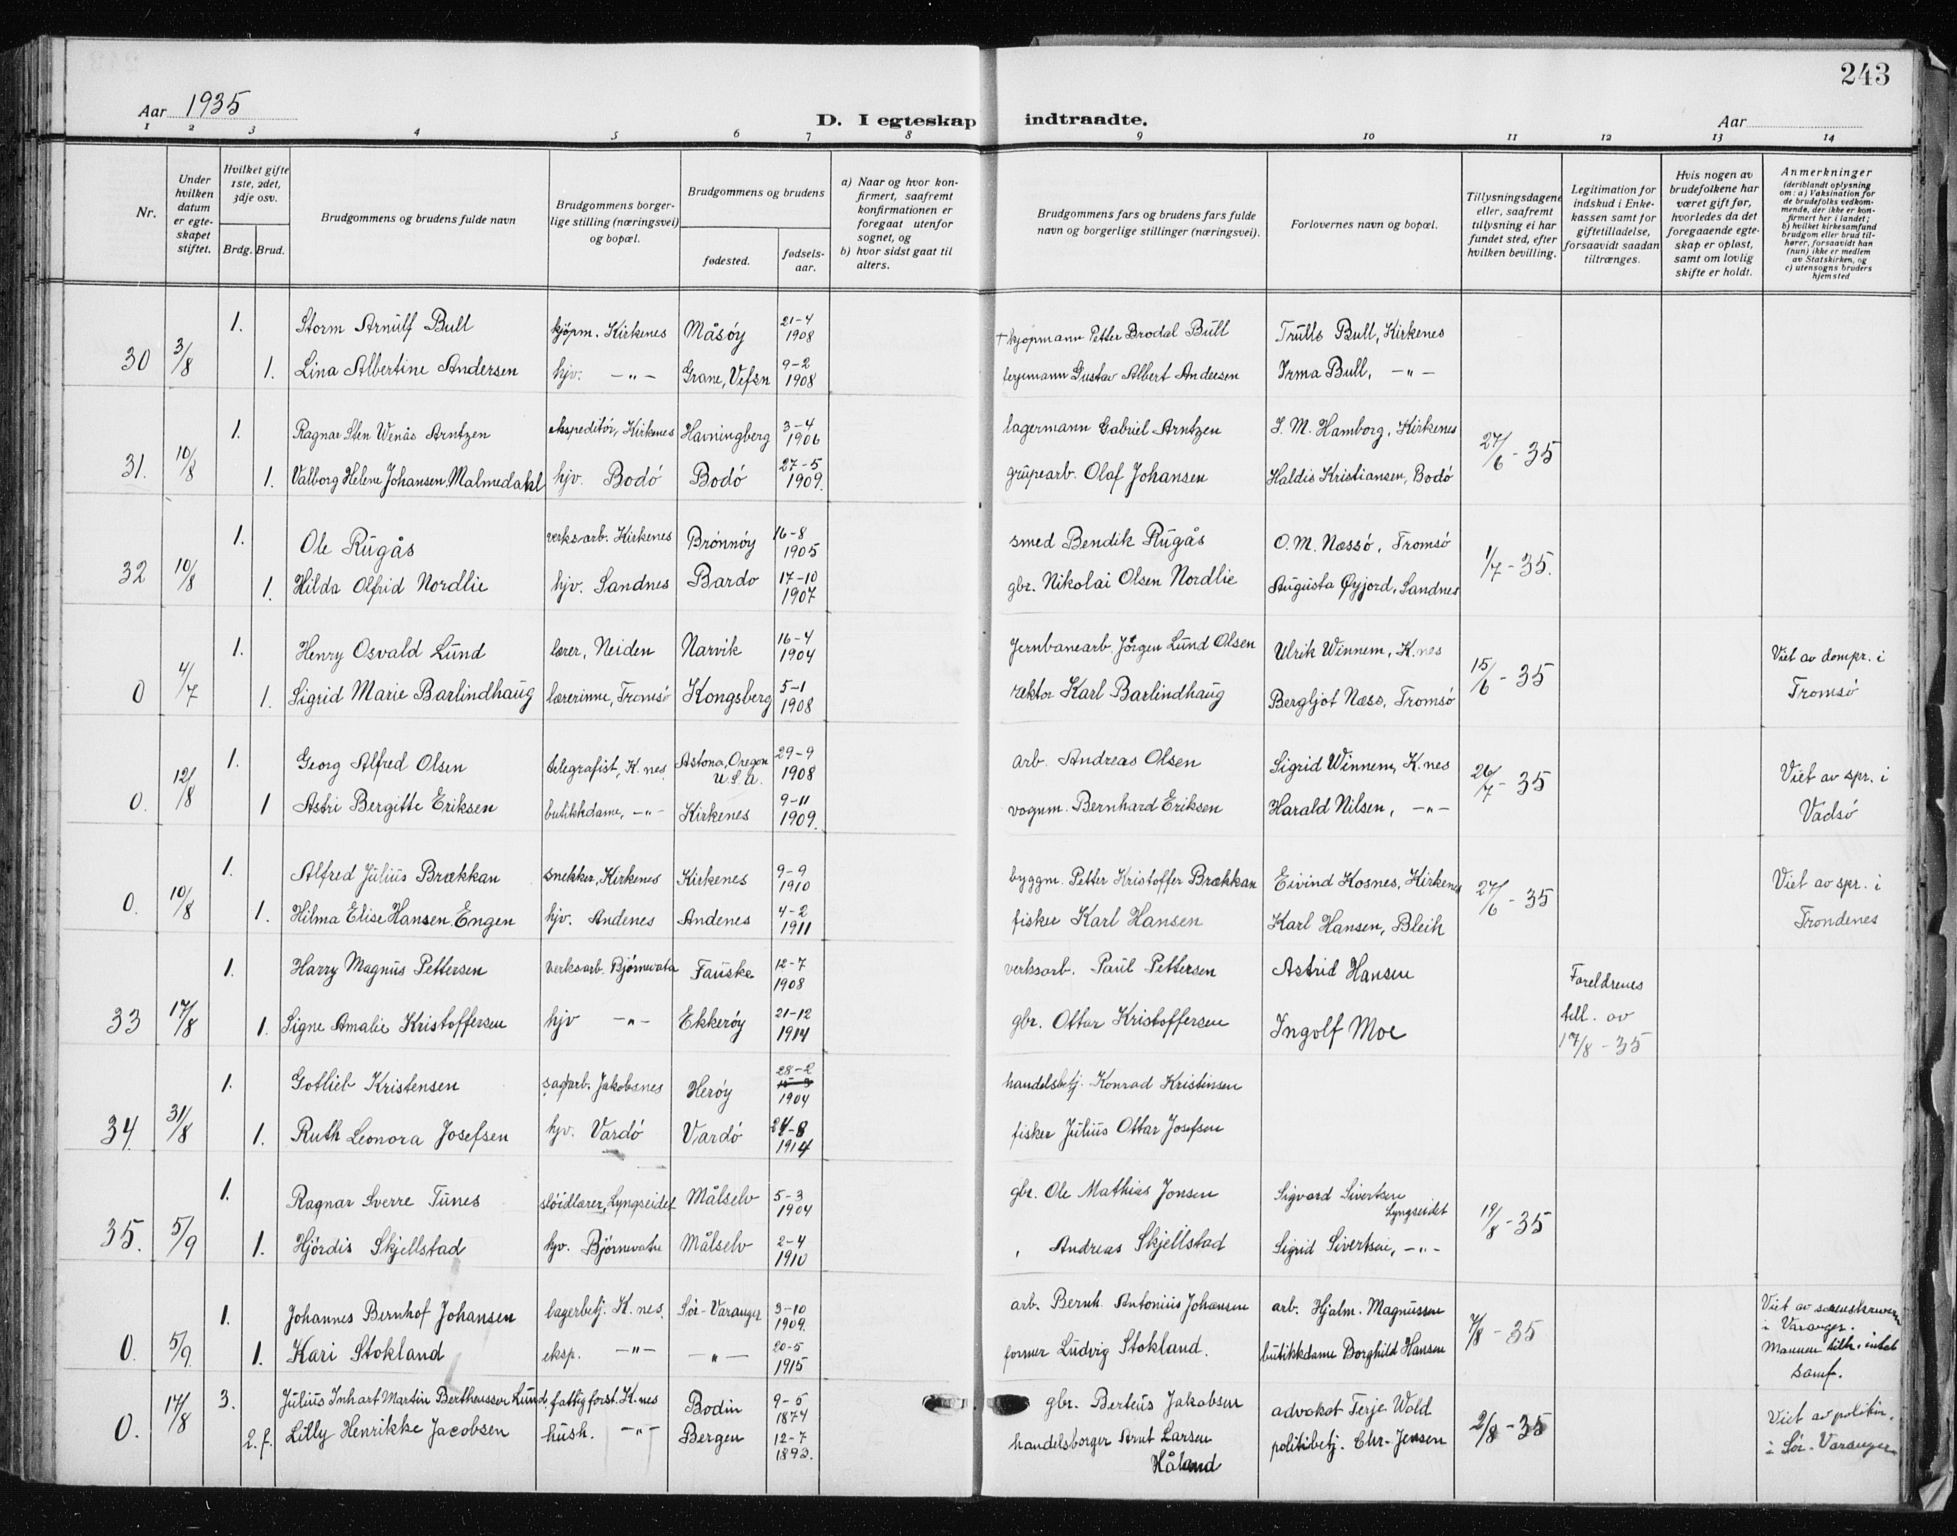 243
Aar 1935
D. I egteskap indtraadte.
Aar
1 2 3 4 5 6 7 8 9 10 11 12 13 14
Nr.
Under hvilken datum er egteskapet stiftet.
Hvilket gifte 1ste, 2det, 3dje osv.
Brdg. Brud.
Brudgommens og brudens fulde navn
Brudgommens borgerlige stilling (næringsvei) og bopæl.
Brudgommens og brudens
fødested.
fødselsaar.
a) Naar og hvor konfirmert, saafremt konfirmationen er foregaat utenfor sognet, og
b) hvor sidst gaat til alters.
Brudgommens fars og brudens fars fulde navn og borgerlige stillinger (næringsvei).
Forlovernes navn og bopæl.
Tillysningsdagene eller, saafremt tillysning ei har fundet sted, efter hvilken bevilling.
Legitimation for indskud i Enkekassen samt for giftetilladelse, forsaavidt saadan tiltrænges.
Hvis nogen av brudefolkene har været gift før, hvorledes da det foregaaende egteskap er opløst, samt om lovlig skifte er holdt.
Anmerkninger (deriblandt oplysning om: a) Vaksination for de brudefolks vedkommende, der ikke er konfirmert her i landet; b) hvilket kirkesamfund brudgom eller brud tilhører, forsaavidt han (hun) ikke er medlem av Statskirken, og c) utensogns bruders hjemsted
1. Storm Arnulf Bull kjøpm. Kirkenes Måsøy 21-4 1908 + kjøpmann Petter Brodal Bull Trulls Bull, Kirkenes
30 3/8 1. Lina Albertine Andersen hjv. -"- Grane, Vefsn 9-2 1908 Gustav Albert Andersen Irma Bull, -"-
1. Ragnar Sten Wenås Arntzen ekspeditør, Kirkenes Havningberg 3-4 1906 lagermann Gabriel Arntzen J. M. Hamborg, Kirkenes 27/6-35
31. 10/8 1. Valborg Helene Johansen Malmedahl hjv. Bodö Bodö 27-5 1909. Olaf Johansen Haldis Kristiansen, Bodö
1. Ole Rugås verksarb. Kirkenes Brønnøy 16-8 1905 smed Bendik Rugås O. M. Næssö, Tromsö 1/7-35.
32 10/8 1. Hilda Olfrid Nordlie hjv. Sandnes Bardo 17-10 1907 gbr. Nikolai Olsen Nordlie Augusta Øyjord, Sandnes
1. Henry Osvald Lund lærer, Neiden Narvik 16-4 1904 Jernbanearb. Jörgen Lund Olsen Ulrik Winnem, K.nes 15/6-35 Viet av dompr. i
0 4/7 1. Sigrid Marie Barlindhaug lærerinne, Tromsö Kongsberg 5-1 1908 rektor Karl Barlindhaug Bergljot Næss, Tromsö Tromsö
1. Georg Alfred Olsen telegrafist, K.nes. Astona, Oregon U.S.A. 29-9 1908 arb. Andreas Olsen Sigrid Winnem, K.nes 26/7-35 Viet av spr. i
0. 12/8 1 Astri Bergitte Eriksen butikkdame, -"- Kirkenes 9-11 1909. vognm. Bernhard Eriksen Harald Nilsen, -"- Vadsö
1. Alfred Julius Brækkan snekker, Kirkenes Kirkenes 9-9 1910 byggm. Petter Kristoffer Brækkan Eivind Kosnes, Kirkenes 27/6-35 Viet av spr. i
0. 10/8 1. Hilma Elise Hansen Engen hjv. Andenes Andenes 4-2 1911 fisker Karl Hansen Karl Hansen, Bleik Trondenes
1. Harry Magnus Pettersen verksarb. Bjørnevatn Fauske 12-7 1908 verksarb. Paul Pettersen Astrid Hansen Foreldrenes
33 17/8 1. Signe Amalie Kristoffersen hjv -"- Ekkerøy 21-12 1914 gbr. Ottar Kristoffersen Ingolf Moe till. av 17/8-35
1. Gotlieb Kristensen sagarb. Jakobsnes Herøy 28-2 1904 handelsbetj. Konrad Kristensen
34. 31/8 1. Ruth Leonora Josefsen hjv. Vardö Vardö 24-8 1914 fisker Julius Ottar Josefsen
1. Ragnar Sverre Tunes sløidlærer, Lyngseidet Målselv 5-3 1904 gbr. Ole Mathias Jonsen Sigvard Sivertsen Lyngseidet 19/8-35
35. 5/9 1. Hjördis Skjellstad hjv. Bjørnevatn Målselv 2-4 1910 " Andreas Skjellstad Sigrid Sivertsen, -"-
1. Johannes Bernhof Johansen lagerbetj. K.nes. Sör-Varanger 3-10 1909. arb. Bernh. Antonius Johansen arb. Hjalm. Magnussen 7/8-35 Viet av sorenskriveren i Varanger.
0. 5/9 1. Kari Stokland eksp. -"- -"- 20-5 1915 former Ludvig Stokland. butikkdame Borghild Hansen Mannen tilh. intet samf.
3. Julius Inhart Martin Bertheussen Lund. fattigforst. K.nes Bodin 9-5 1874 gbr. Berteus Jakobsen advokat Terje Wold 2/8-35 Viet av politim.
0. 17/8 2. f. Lilly Henrikke Jacobsen hush. -"- Bergen 12-7 1892. handelsborger Arnt Larsen Håland politibetj. Chr. Jensen i Sör-Varanger